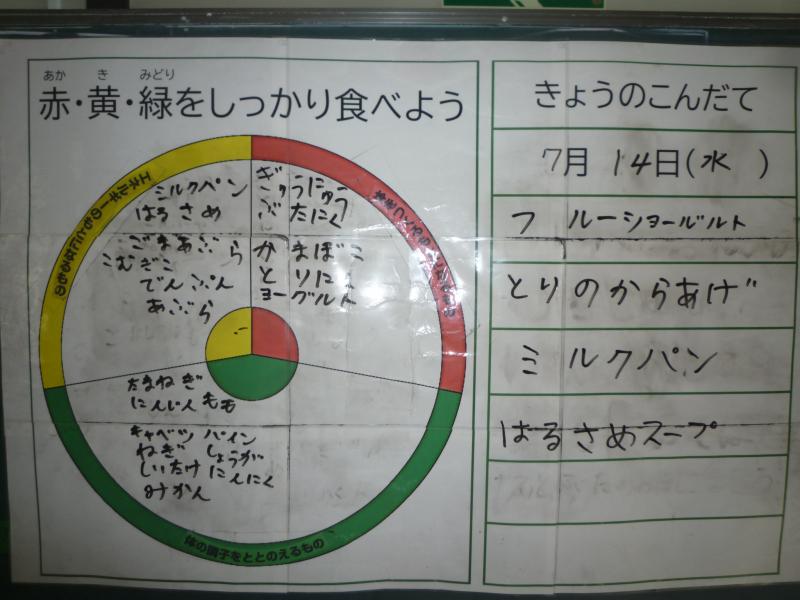 あか き みどり
赤・黄・緑をしっかり食べよう
ミルクパン
はるさめ
ごまあぶら
こむぎこ
でんぷん
あぶら
ぎゅうにゅう
ぶたにく
かまぼこ
とりにく
ヨーグルト
たまねぎ
にんじん もも
キャベツ パイン
ねぎ しょうが
しいたけ にんにく
みかん
体の調子をととのえるもの
きょうのこんだて
7月 14日(水 )
フルーショーグルト
とりのからあげ
ミルクパン
はるさめスープ